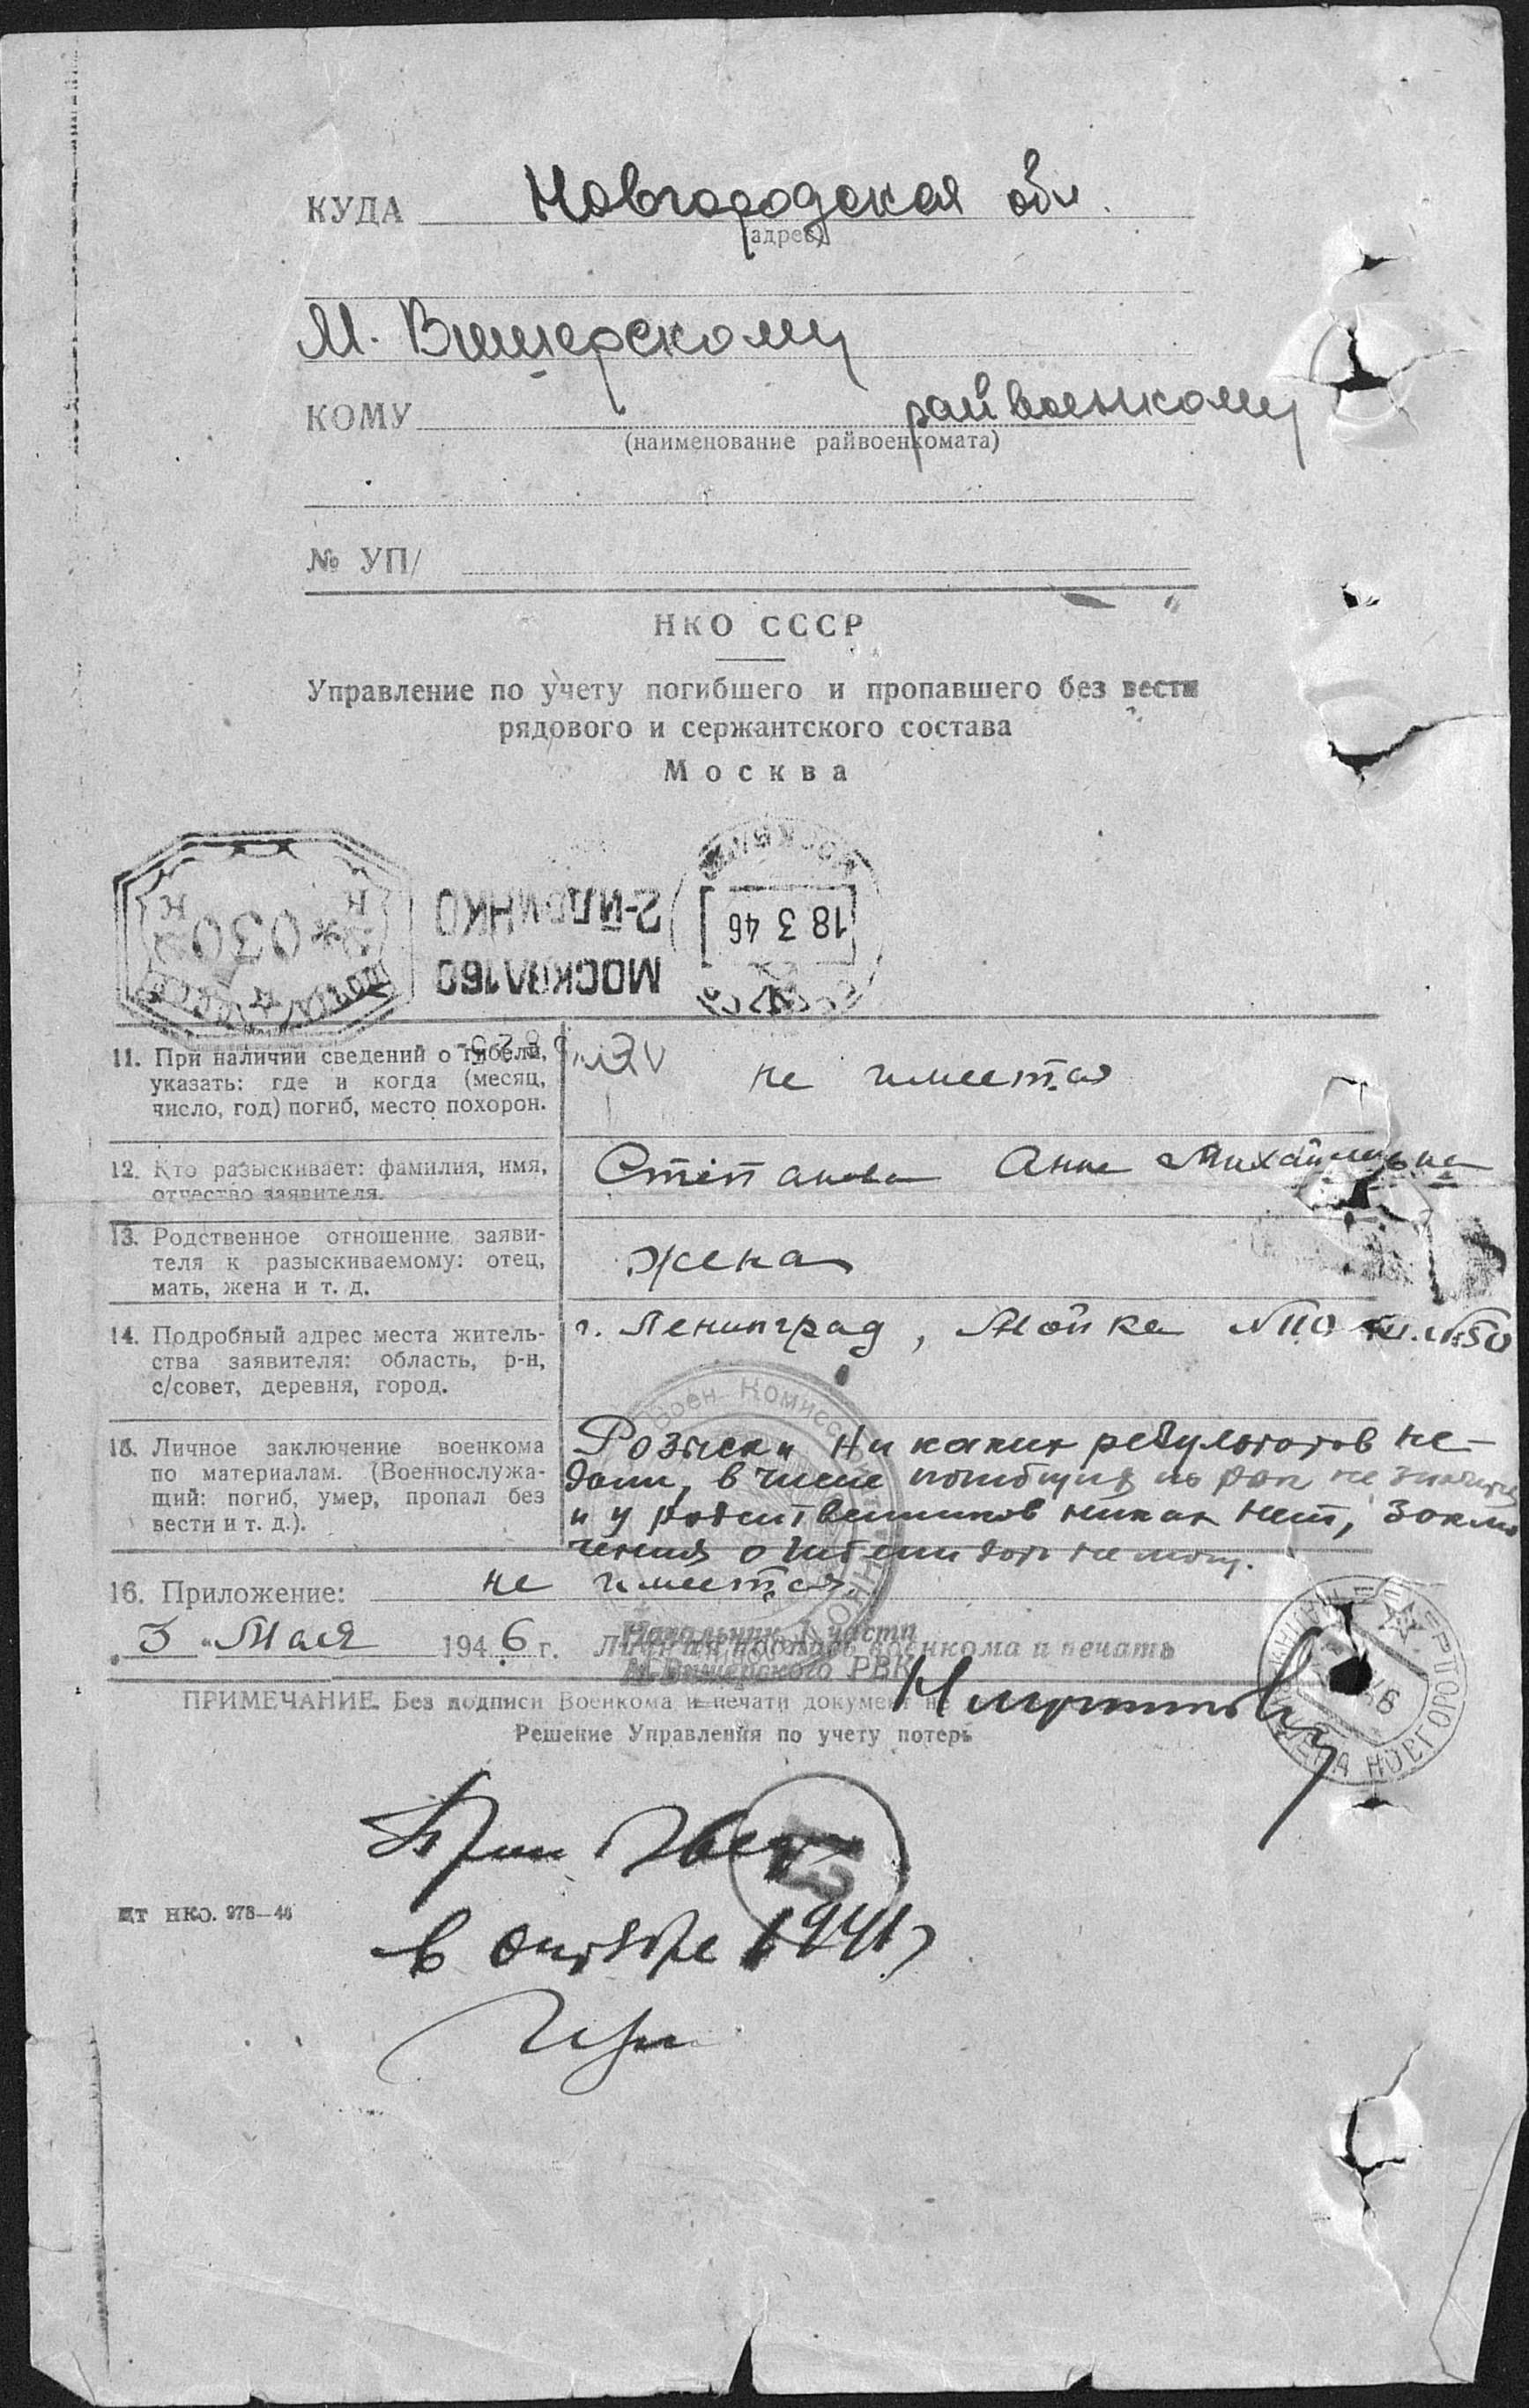 КУДА Новгородская обл.
(адрес)
М. Вишерскому
КОМУ райвоенкому
(наименование райвоенкомата)
№ УП/
НКО СССР
Управление по учету погибшего и пропавшего без вести
рядового и сержантского состава
Москва
ПОЧТА СССР
К 030 К
МОСКВА 160
2-й ДОМ НКО
МОСКВА
18 3 46
11. При наличии сведений о гибели,
указать: где и когда (месяц,
число, год) погиб, место похорон.
не имеется
12. Кто разыскивает: фамилия, имя,
отчество заявителя.
Степанова Анна Михайловна
13. Родственное отношение заяви-
теля к разыскиваемому: отец,
мать, жена и т. д.
жена
14. Подробный адрес места житель-
ства заявителя: область, р-н,
с/совет, деревня, город.
г. Ленинград, Мойка №110 кв. №50
15. Личное заключение военкома
по материалам. (Военнослужа-
щий: погиб, умер, пропал без
вести и т. д.).
Розыски никаких результатов не-
дали, в числе погибших по рвк не значится
и у родственников никак нет, заклю
чения о гибели дать не могу.
16. Приложение: не имеется.
3 " Мая 1946 г. Личная подпись военкома и печать
Начальник 1 части
М-Вишерского РВК
ПРИМЕЧАНИЕ. Без подписи Военкома и печати документ не
Решение Управления по учету потерь
13
в октябре 1941 г
ЦТ НКО. 978—46